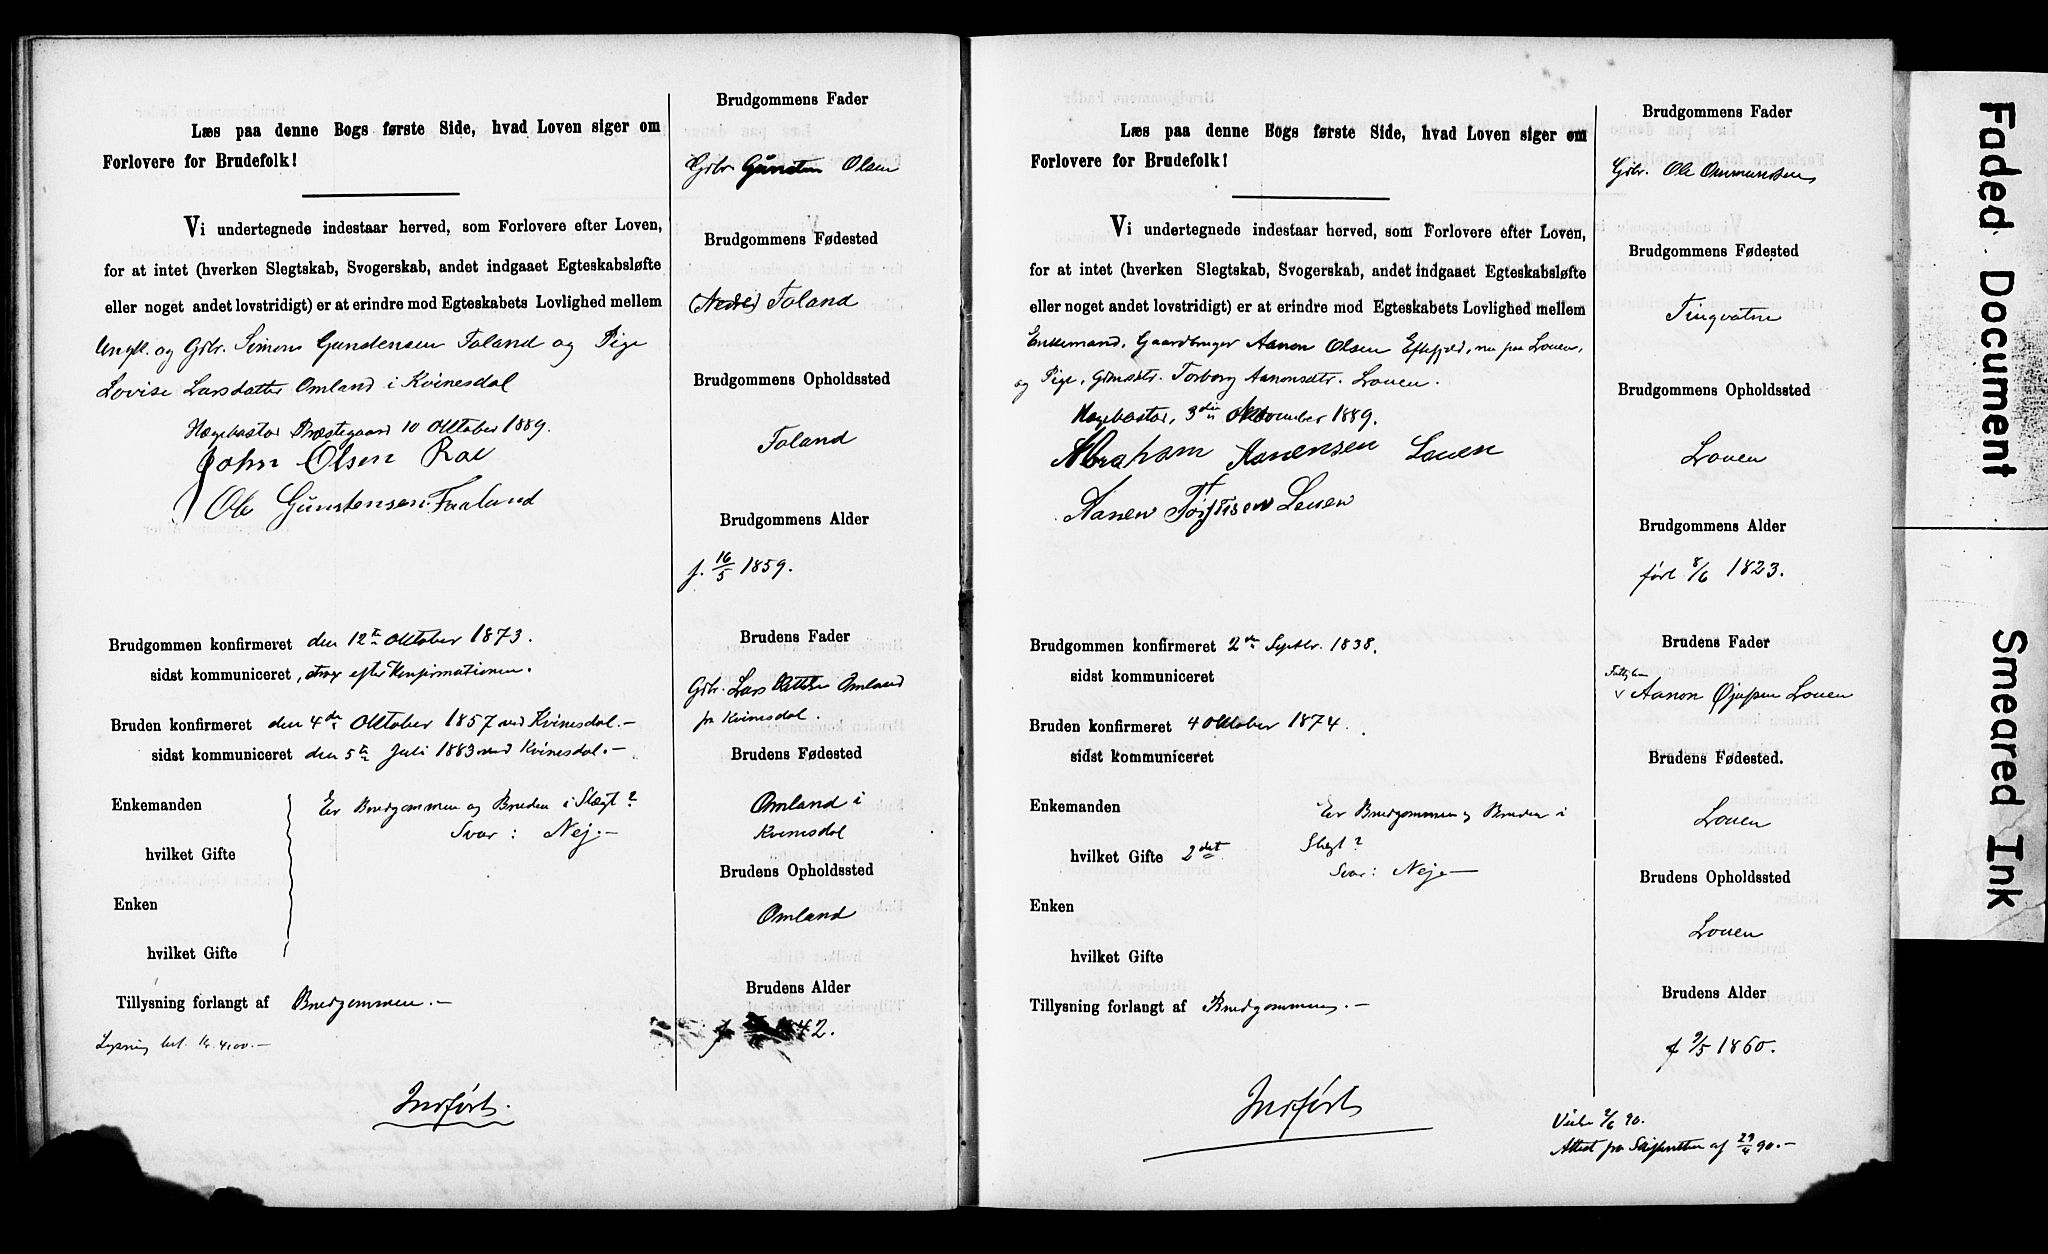 Læs paa denne Bogs første Side, hvad Loven siger om
Forlovere for Brudefolk!
Vi undertegnede indestaar herved, som Forlovere efter Loven,
for at intet (hverken Slegtskab, Svogerskab, andet indgaaet Egteskabsløfte
eller noget andet lovstridigt) er at erindre mod Egteskabets Lovlighed mellem
Ungk. og Gdbr. Simon Foland og Pige
Lovise Larsdatter Omland i Kvinesdal
Hægebostad Præstegaard 10 Oktober 1889.
John Olsen Roe
Ole Gunstensen Faaland
Brudgommen konfirmeret den 12te Oktober 1873.
sidst kommuniceret, strax efter Konfirmationen.
Bruden konfirmeret den 4de Oktober 1857 ved Kvinesdal.-
sidst kommuniceret den 5te Juli 1883 ved Kvinesdal.-
Enkemanden
Er Brudgommen og Bruden i Slægt?
Svar: Nej.-
hvilket Gifte
Enken
hvilket Gifte
Tillysning forlangt af Brudgommen.-
Lysning bet. Kr. 4,00.-
Indført.
Brudgommens Fader
Gdbr. Gunsten Olsen
Brudgommens Fødested
(Nedre) Foland
Brudgommens Opholdssted
Foland
Brudgommens Alder
f. 16/5 1859.
Brudens Fader
Gdbr. Lars Omland
fra Kvinesdal.
Brudens Fødested
Omland i
Kvinesdal
Brudens Opholdssted
Omland
Brudens Alder
f 42.
Læs paa denne Bogs første Side, hvad Loven siger om
Forlovere for Brudefolk!
Vi undertegnede indestaar herved, som Forlovere efter Loven,
for at intet (hverken Slegtskab, Svogerskab, andet indgaaet Egteskabsløfte
eller noget andet lovstridigt) er at erindre mod Egteskabets Lovlighed mellem
Enkemand, Gaardbruger Aanon Olsen Eftefjeld, nu paa Louen,
og Pige, Torborg Aanonsdtr. Louen.
Hægebostad, 3die November 1889.
Abraham Aanensen Louen
Aanen Louen
Brudgommen konfirmeret 2den Septbr. 1838.
sidst kommuniceret
Bruden konfirmeret 4 Oktober 1874.
sidst kommuniceret
Enkemanden
Er Brudgommen og Bruden i
Slægt?
hvilket Gifte 2det
Svar: Nej.-
Enken
hvilket Gifte
Tillysning forlangt af Brudgommen.-
Indført
Brudgommens Fader
Gdbr. Ole Ommundsen
Brudgommens Fødested
Tingvatne
Brudgommens Opholdssted
Louen
Brudgommens Alder
født 8/6 1823.
Brudens Fader
Aanon Louen
Brudens Fødested.
Louen
Brudens Opholdssted
Louen
Brudens Alder
f 9/5 1860.
Viede 9/6 90.
Attest fra Skifteretten af 29/4 90.-
Faded Document
Smeared Ink